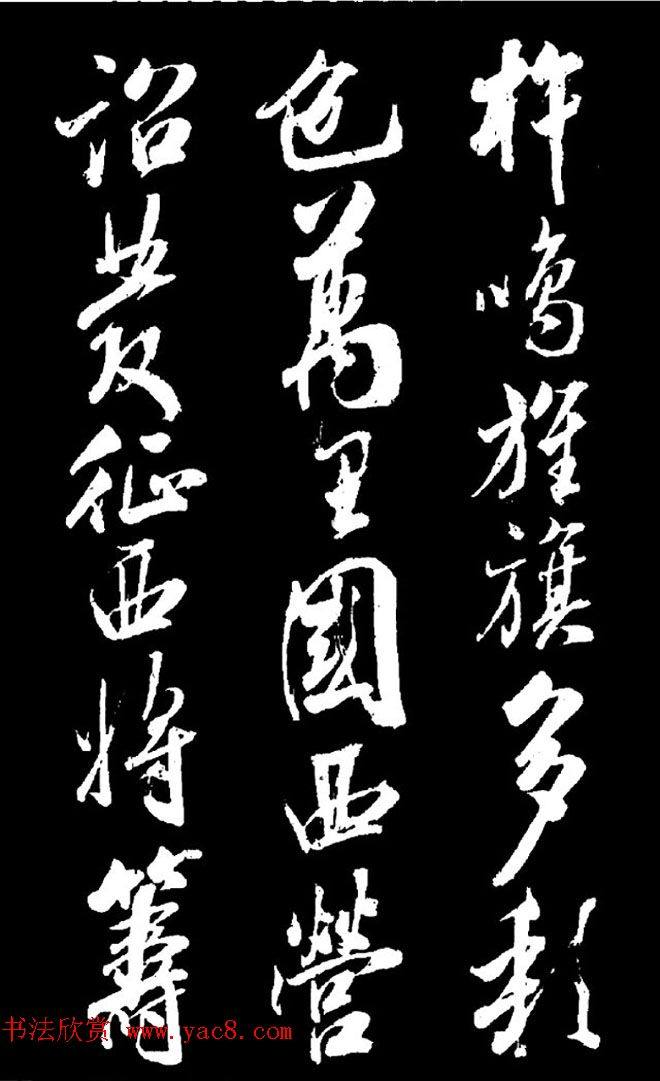 杵鳴旌旗多彩
色萬里國西營
詔發征西將籌
书法欣赏 www.yac8.com